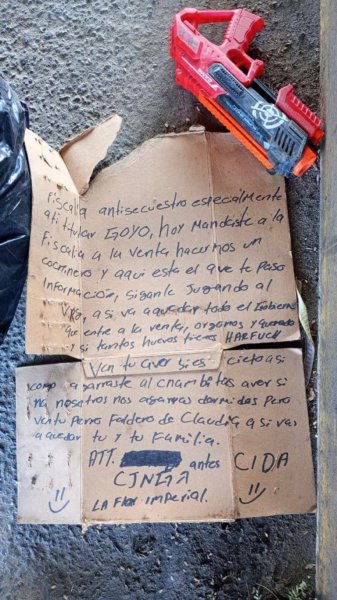 Fiscalia antisecuestro especialmente
ati titular GOYO, hoy Mandaste a la
Fiscalia a la venta hacernos un
cochinero y aqui esta el que te Paso
Informacion, siganle Jugando al
asi va aquedar todo el Gobierno
que entre a la venta, orgamos y
y si tantos huevos tienes HARFUCH
Ven tu aver si es cieto asi
como agarraste al chambitas aver si
na nosotros nos agarras dormidos Pero
ven tu Perro Faldero de Claudia asi vas
a quedar tu y tu Familia.
ATT. antes CIDA
CJNGA
LA Flor imperial.